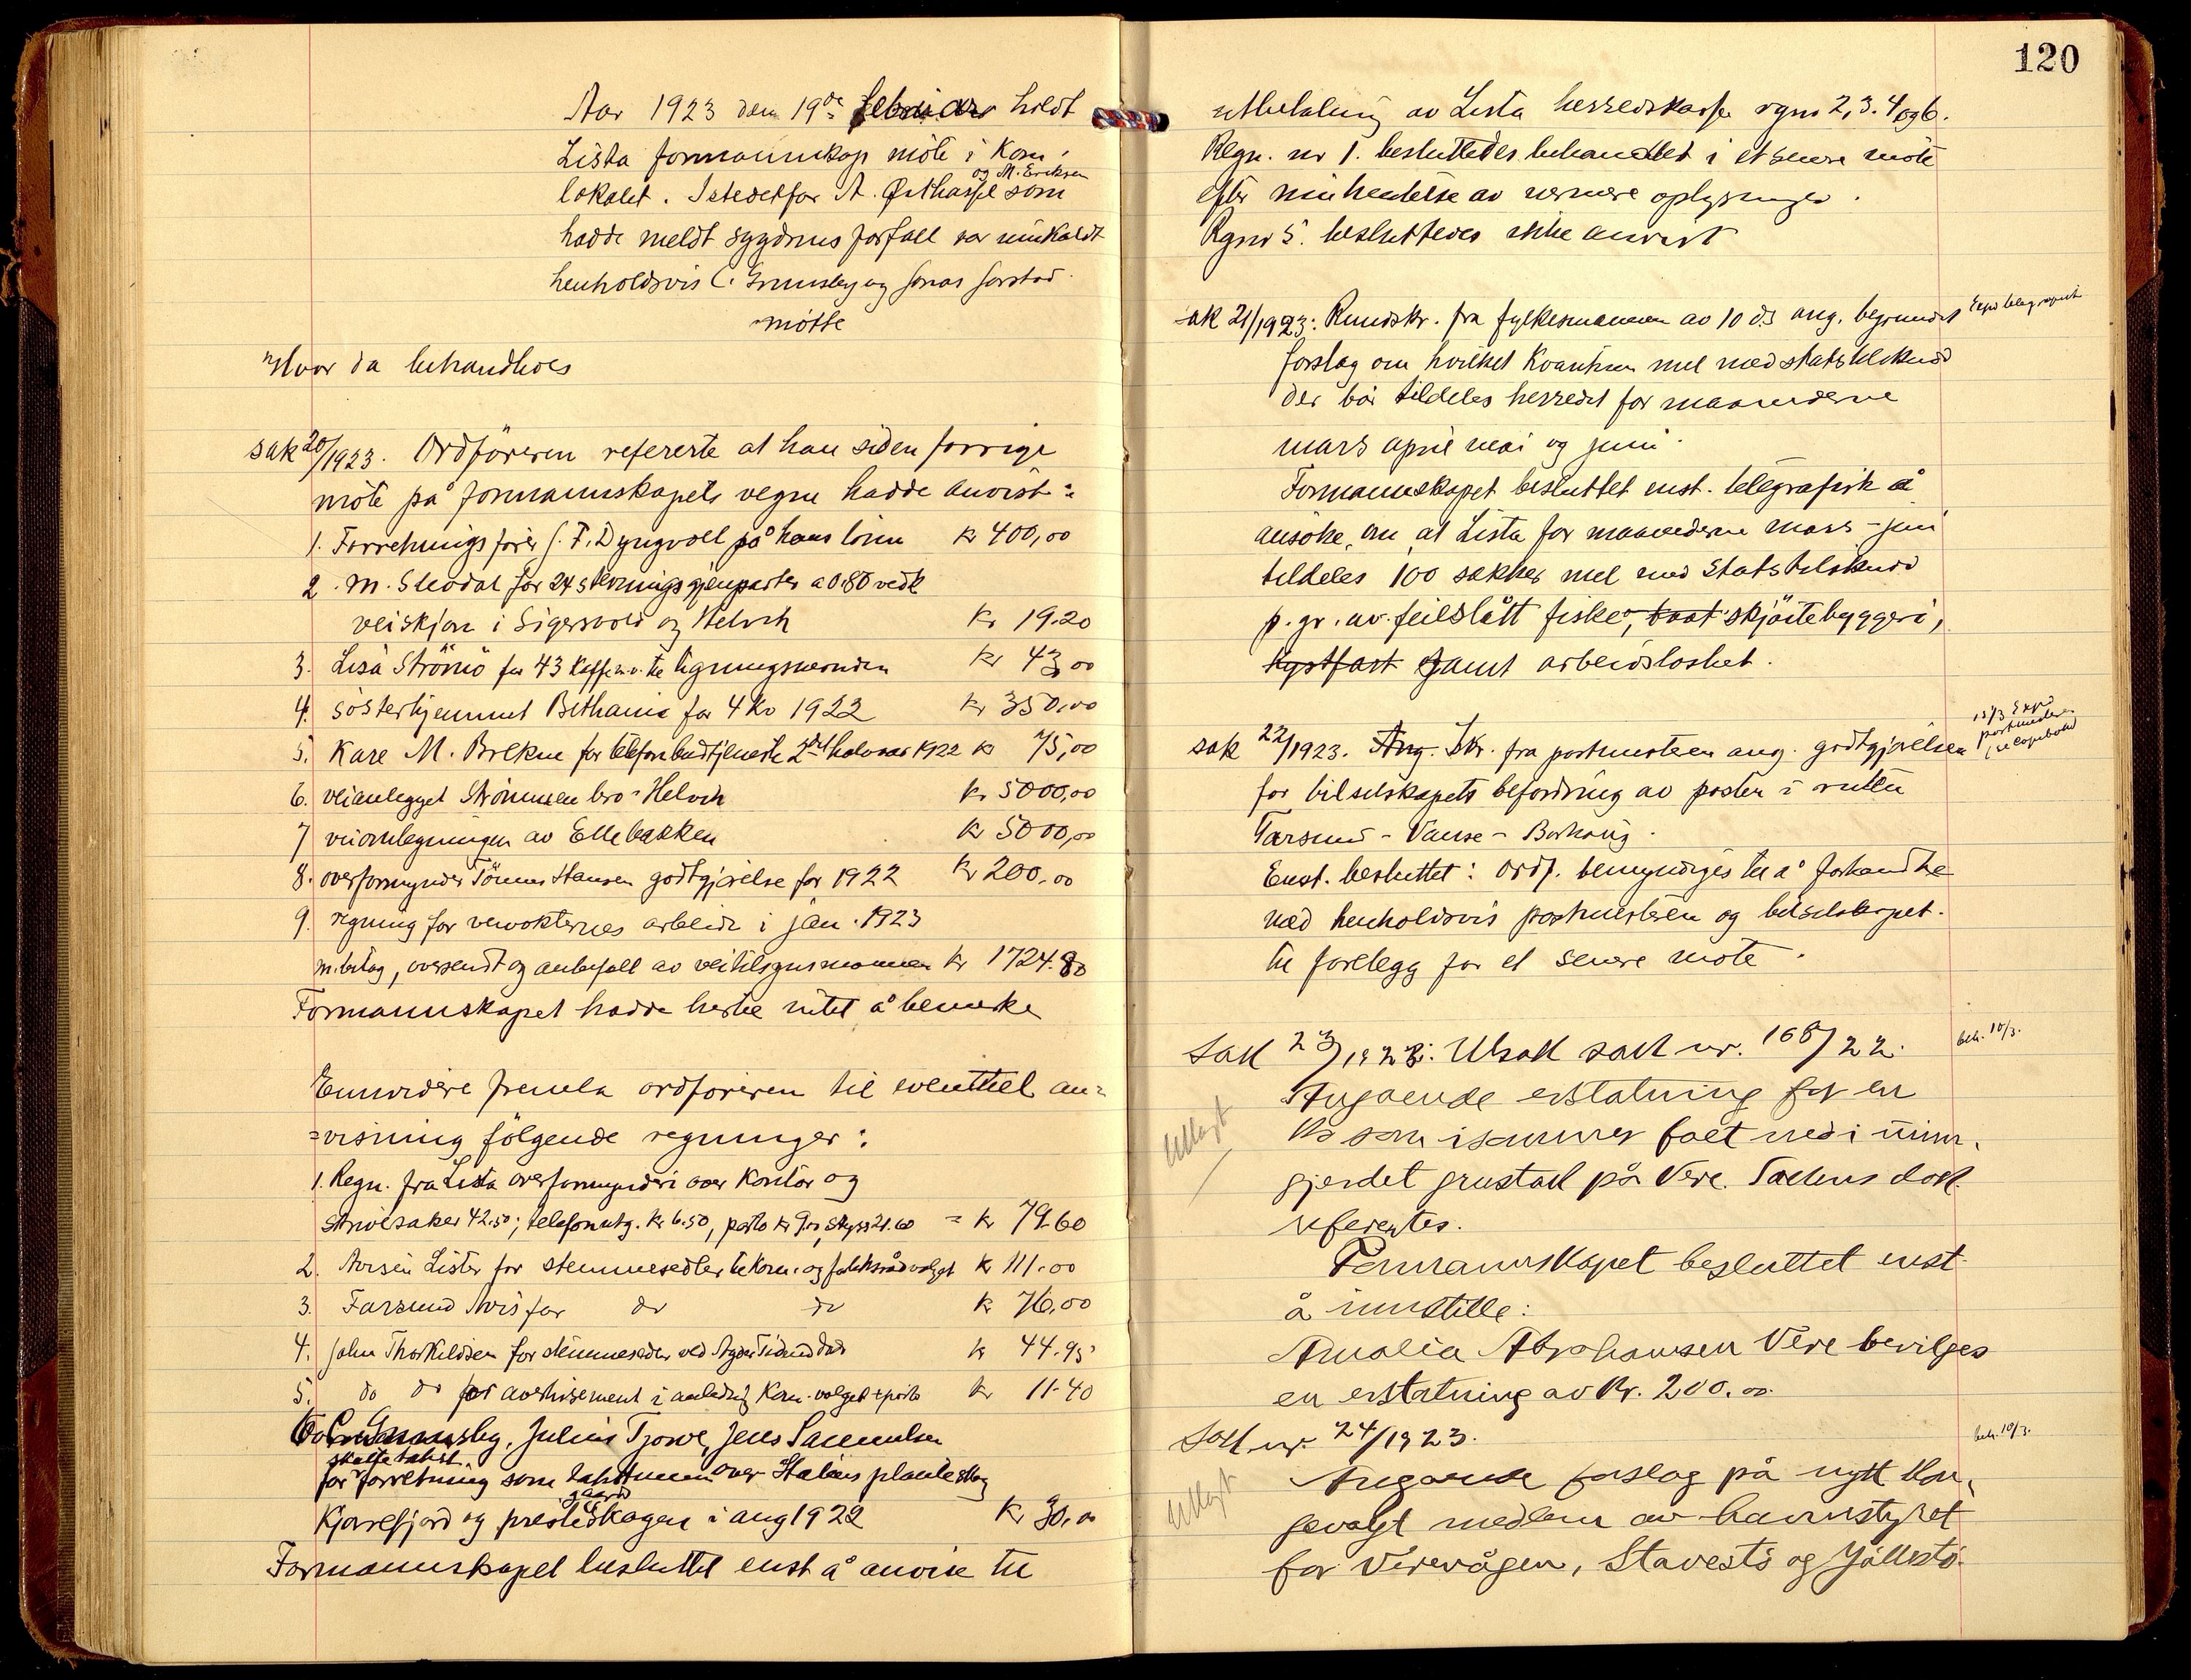 Aar 1923 den 19de februar holdt
Lista formannskap möte i Kom.
og M. Eriksen
lokalet. Istedetfor A. Östhassel som
hadde meldt sygdoms forfall var innkaldt
henholdsvis C. Grimsby og Jonas Jorstad
mötte
Hvor da behandledes
sak 20/1923. Ordföreren refererte at han siden forrige
möte på formannskapets vegne hadde anvist:
1. Forretningsförer J. F. Dyngvoll på hans lönn kr 400,00
2. M. Slevdal for 24 skröningsgjenparter a 0.80 vedk
veiskjön i Sigersvold og Helvik kr 19.20
3. Lisa Strömö for 43 kaffe m.v. til ligningsnevnden kr 43,00
4. Sösterhjemmet Bethania for 4 kv 1922 kr 350,00
5. Kare M. Brekne for telefonbudtjeneste 2det halvaar 1922 kr 75,00
6. veianlegget Strömmen bro - Helvik kr 5000,00
7 veiomlegningen av Ellebakken kr 5000,00
8. overformynder Tönnes Hansen godtgjörelse for 1922 kr 200,00
9. regning for veivokternes arbeide i jan. 1923
m. bilag, oversendt og anbefalt av veitilsynsmannen kr 1724.80
Formannskapet hadde hertil intet å bemerke
Ennvidere fremla ordföreren til eventuel an=
=visning fölgende regninger:
1. Regn. fra Lista overformynderi over kontor og
skrivesaker 42.50; telefonutg. kr 6.50, porto kr 9.00, skyss 21.60 = kr 79.60
2. Avisen Lister for stemmesedler til kom. og folkerådvalget kr 111.00
3. Farsund Avis for do do kr 76,00
4. John Thorkildsen for stemmesedler ved Agder Tidend do kr 44.95
5. do do for avertisement i anledning kom. valget + porto kr 11.40
6 C. Grimsby, Julius Tjorve, Jens Samuelsen
skatte takst.
for forretning som takstmenn over Statens planteskog
gaard
Kjörrefjord og presteskogen i aug 1922 kr 30,00
Formannskapet besluttet enst å anvise til
120
utbetaling av Lista herredskasse regn 2, 3. 4 og 6.
Regn. nr 1. besluttedes behandlet i et senere möte
efter innhentelse av nermere oplysninger.
Regn 5. besluttedes ikke anvist
sak 21/1923: Rundskr. fra fylkesmannen av 10 ds ang. begrunnet
Exp. telegrafisk
forslag om hvilket kvantum mel med statstilskudd
der bör tildeles herredet for maanederne
mars april mai og juni.
Formannskapet besluttet enst. telegrafisk å
ansöke, om at Lista for maanederne mars - juni
tildeles 100 sekker mel med Statstilskudd
p. gr. av feilslått fiske, baat skjöitebyggeri,
kystfart samt arbeidslöshet.
sak 22/1923. Ang. Skr. fra postmesteren ang. godtgjörelsen
13/3 Exp.
postmesteren
for bilselskapets befordring av posten i ruten
Farsund - Vanse - Borhaug.
Enst. besluttet: Ordf. bemyndiges til å forhandle
med henholdsvis postmesteren og bilselskapet
til forelegg for et senere möte.
Sak 23/1923: Utsatt sak nr. 168/22.
beh. 10/3.
Utlagt
Angaaende erstatning for en
ko som isommer falt ned i uinn-
gjerdet grustak på Vere. Sakens dok.
refereres.
Formannskapet besluttet enst.
å innstille:
Amalia Abrahamsen Vere bevilges
en erstatning av Kr. 200.00.
Sak nr. 24/1923.
beh. 10/3.
Utlagt
Angaaende forslag på nytt kon-
gevalgt medlem av havnestyret
for Verevågen, Stavestö og Jöllestö.